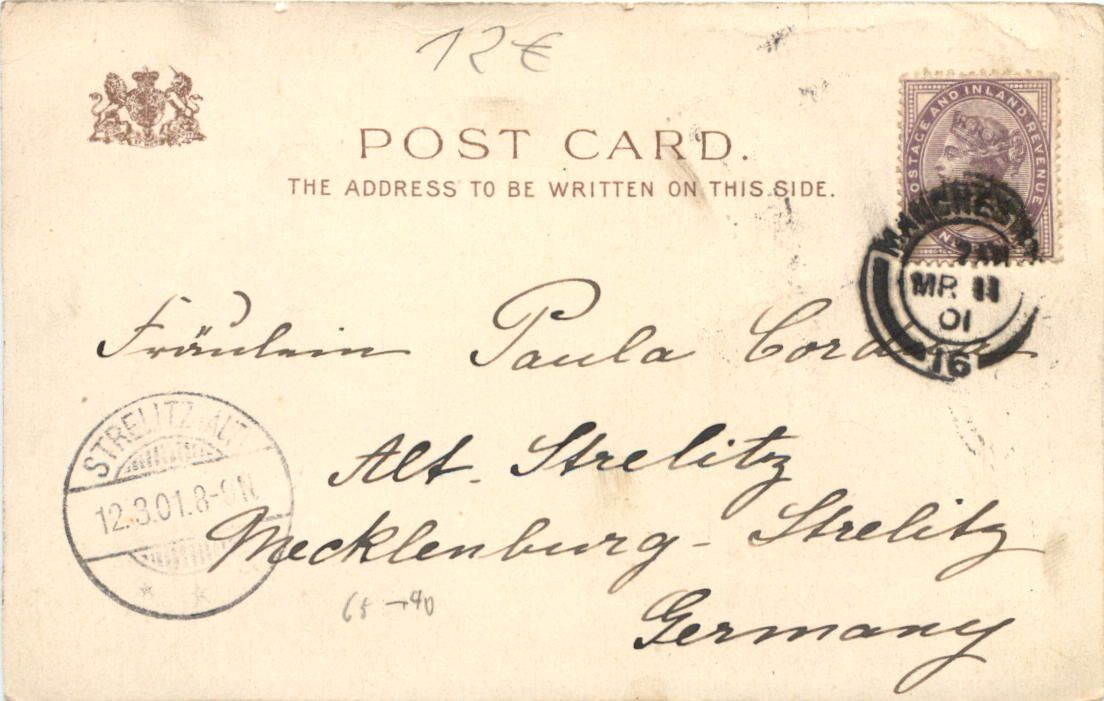 12 €
POST CARD.
THE ADDRESS TO BE WRITTEN ON THIS SIDE.
POSTAGE AND INLAND REVENUE
MANCHESTER
MR 11
01
16
Fräulein Paula
Alt. Strelitz
Mecklenburg - Strelitz
Germany
STRELITZ ALT
12.3.01.8-9N
65 - 40